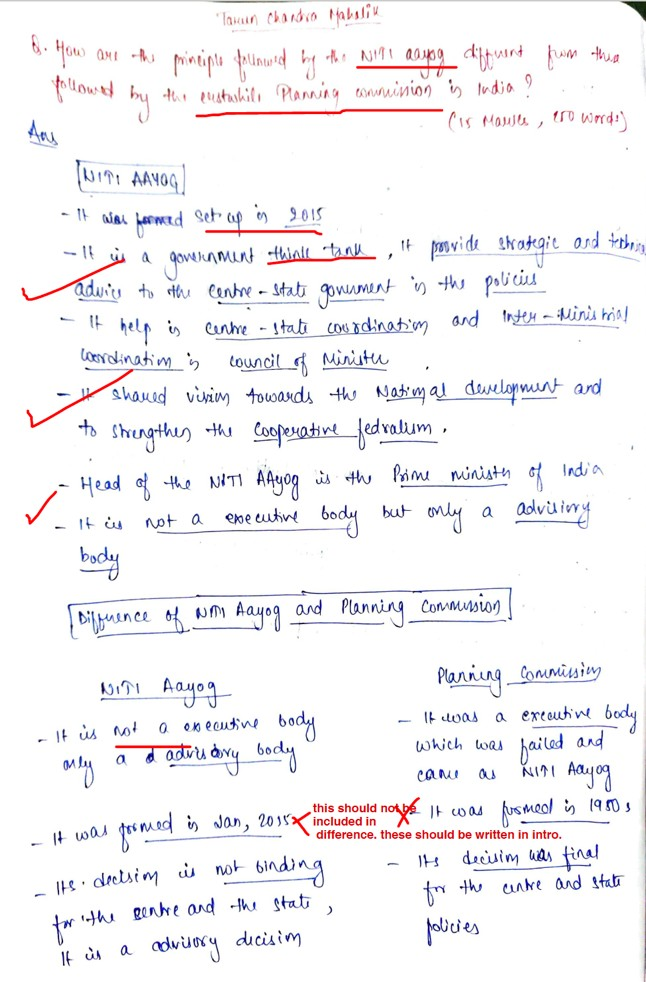 Tarun Chandra Mahalik
Q. How are the principle followed by the NITI aayog diffrent from thea
followed by the eustashile Planning commission is India?
(15 Marks, 250 words)
Ans
NITI AAYOG
- It was formed set up in 2015
- It is a government think tank, It provide strategic and technic
advice to the centre-state government in the policies
- It help in centre-state coordination and Inter-Ministrial
coordination in council of Minister
- It shared vision towards the National development and
to strengthen the cooperative fedralism.
- Head of the NITI AAyog is the Prime minister of India
- It is not a executive body but only a advisiory
body
Diffrence of NITI Aayog and Planning Commission
NITI Aayog
- It is not a executive body
only a advisory body
- It was formed in Jan, 2015
- Its decision is not binding
for the centre and the state,
It is a advisory decision
Planning Commission
- It was a executive body
which was failed and
came as NITI Aayog
- It was formed in 1950s
- Its decision was final
for the centre and state
policies
this should not be
included in
difference. these should be written in intro.